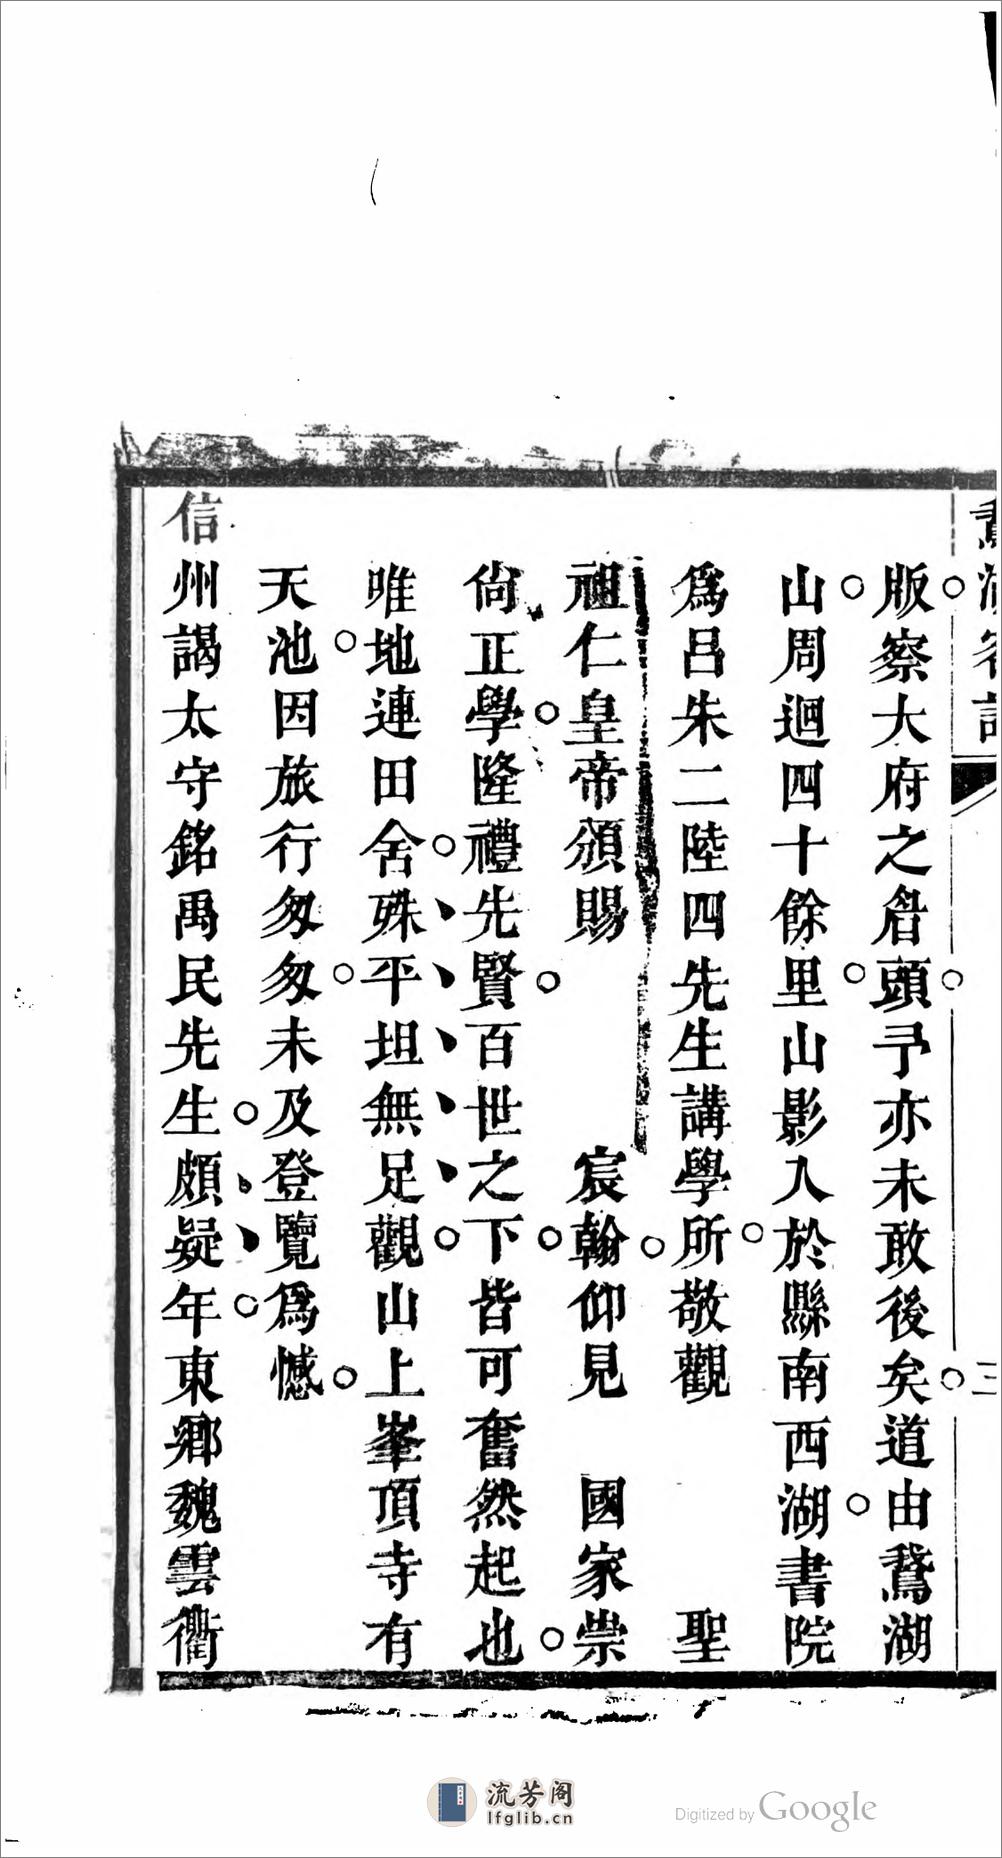 版察大府之咎頭予亦未敢後矣道由鵞湖
山周迴四十餘里山影入於縣南西湖書院
為呂朱二陸四先生講學所敬觀　聖
祖仁皇帝頒賜　宸翰仰見　國家崇
尙正學隆禮先賢百世之下皆可奮然起也
唯地連田舍殊平坦無足觀山上峯頂寺有
天池因旅行匆匆未及登覽爲憾
信州謁太守銘禹民先生頗疑年東鄉魏雲衢
三
流芳阁
lfglib.cn
Digitized by Google